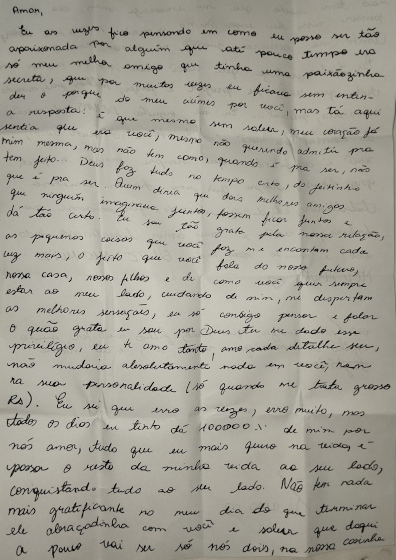 Amor,
Eu as vezes fico pensando em como eu posso ser tão
apaixonada por alguém que até pouco tempo era
só meu melhor amigo que tinha uma paixãozinha
secreta, que por muitas vezes eu ficava sem enten-
der o porque do meu ciúmes por você, mas tá aqui
a resposta: é que mesmo sem saber, meu coração já
sentia que era você, mesmo não querendo admitir pra
mim mesma, mas não tem como, quando é pra ser, não
tem jeito... Deus fez tudo no tempo certo, do jeitinho
que é pra ser. Quem diria que dois melhores amigos
que ninguém imaginava juntos, fossem ficar juntos e
dá tão certo. Eu sou tão grata pela nossa relação,
as pequenas coisas que você faz me encantam cada
vez mais, o jeito que você fala do nosso futuro,
nossa casa, nossos filhos e de como você quer sempre
estar ao meu lado, cuidando de mim, me despertam
as melhores sensações, eu só consigo pensar e falar
o quão grata eu sou por Deus ter me dado esse
privilégio, eu te amo tanto, amo cada detalhe seu,
não mudaria absolutamente nada em você, nem
na sua personalidade (só quando me trata grosso
Rs). Eu sei que erro as vezes, erro muito, mas
todos os dias eu tento dá 100000% de mim por
nós amor, tudo que eu mais quero na vida, é
passar o resto da minha vida ao seu lado,
conquistando tudo ao seu lado. Não tem nada
mais gratificante no meu dia do que terminar
ele abraçadinha com você e saber que daqui
a pouco vai ser só nós dois, na nossa casinha